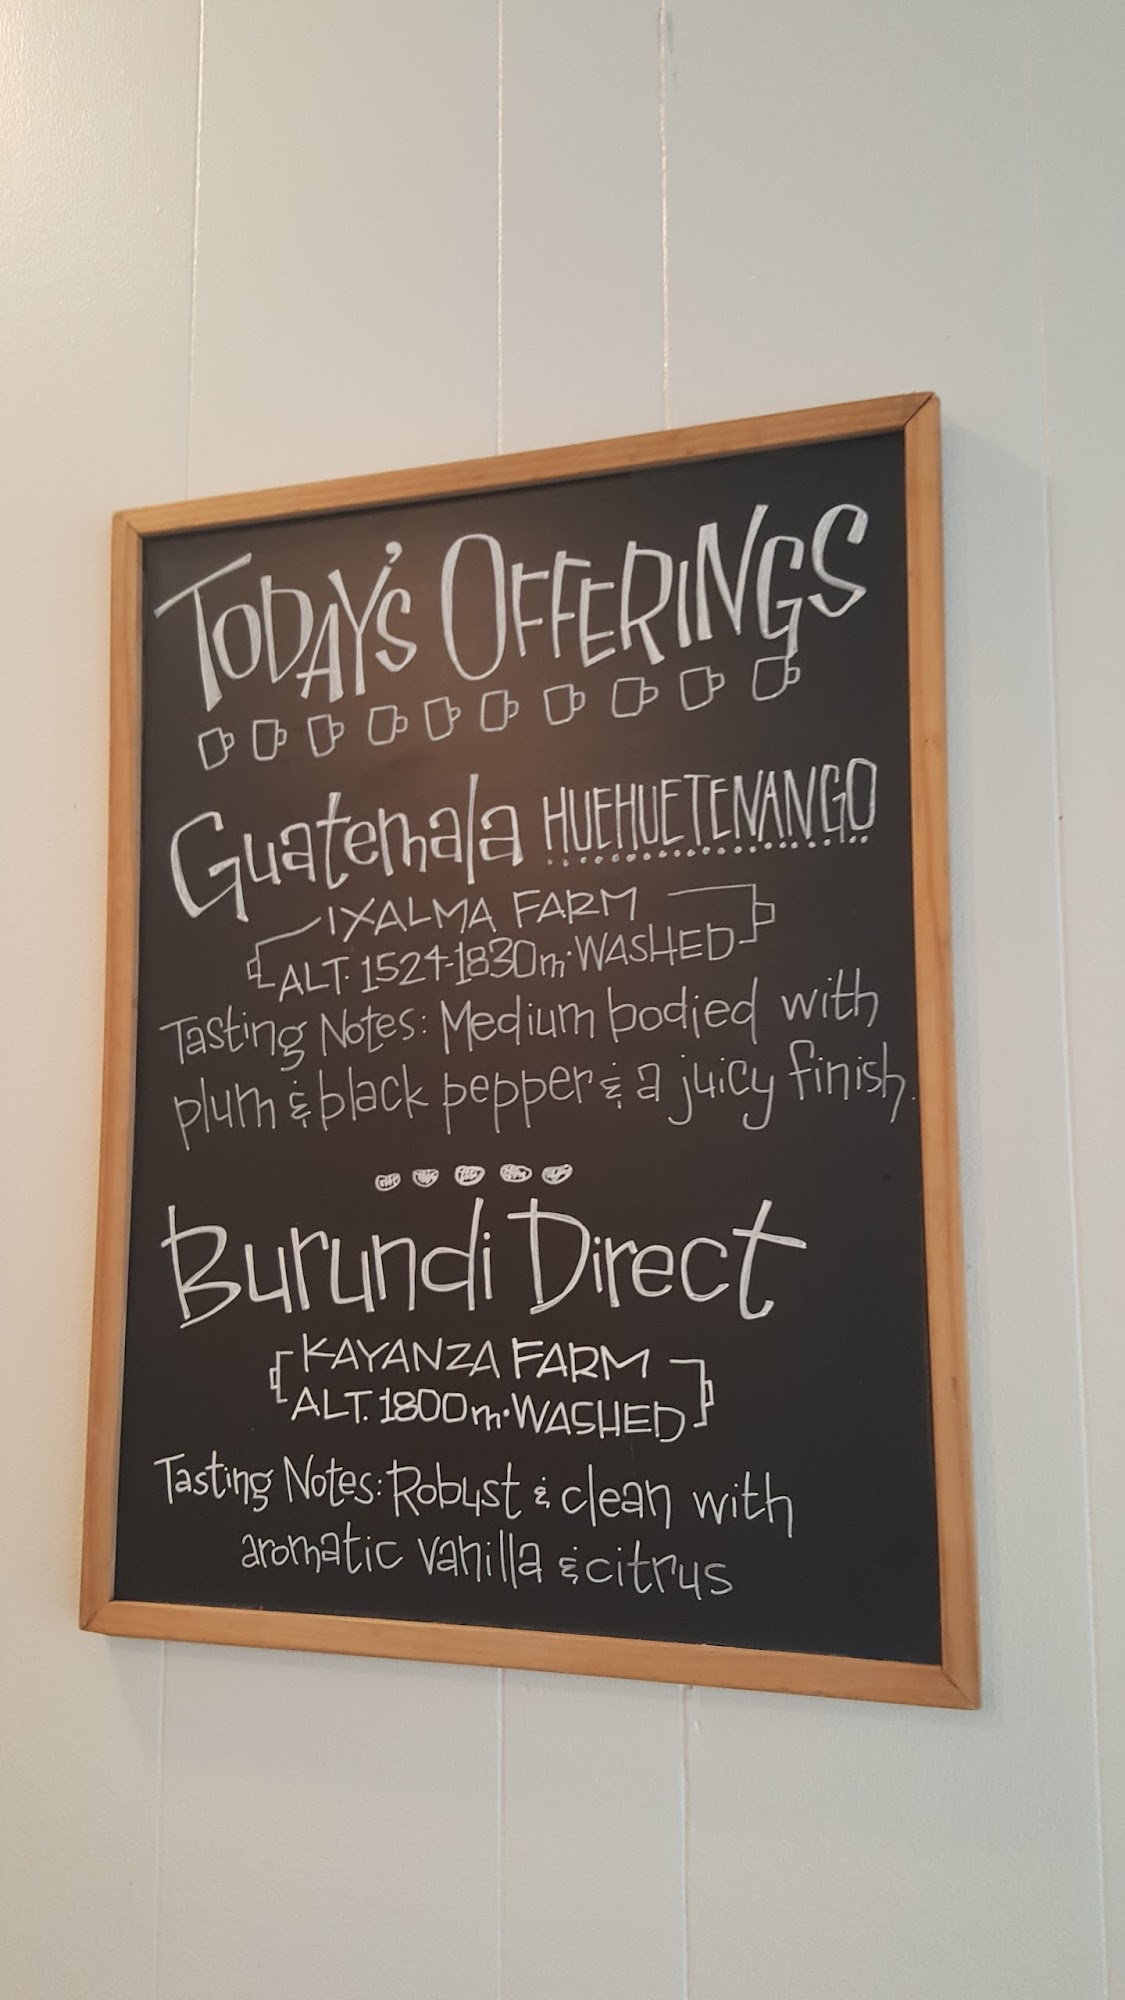 TODAY'S OFFERINGS
Guatemala HUEHUETENANGO
IXALMA FARM
ALT. 1524-1830m·WASHED
Tasting Notes: Medium bodied with
plum & black pepper & a juicy finish.
Burundi Direct
KAYANZA FARM
ALT. 1800m·WASHED
Tasting Notes: Robust & clean with
aromatic vanilla & citrus